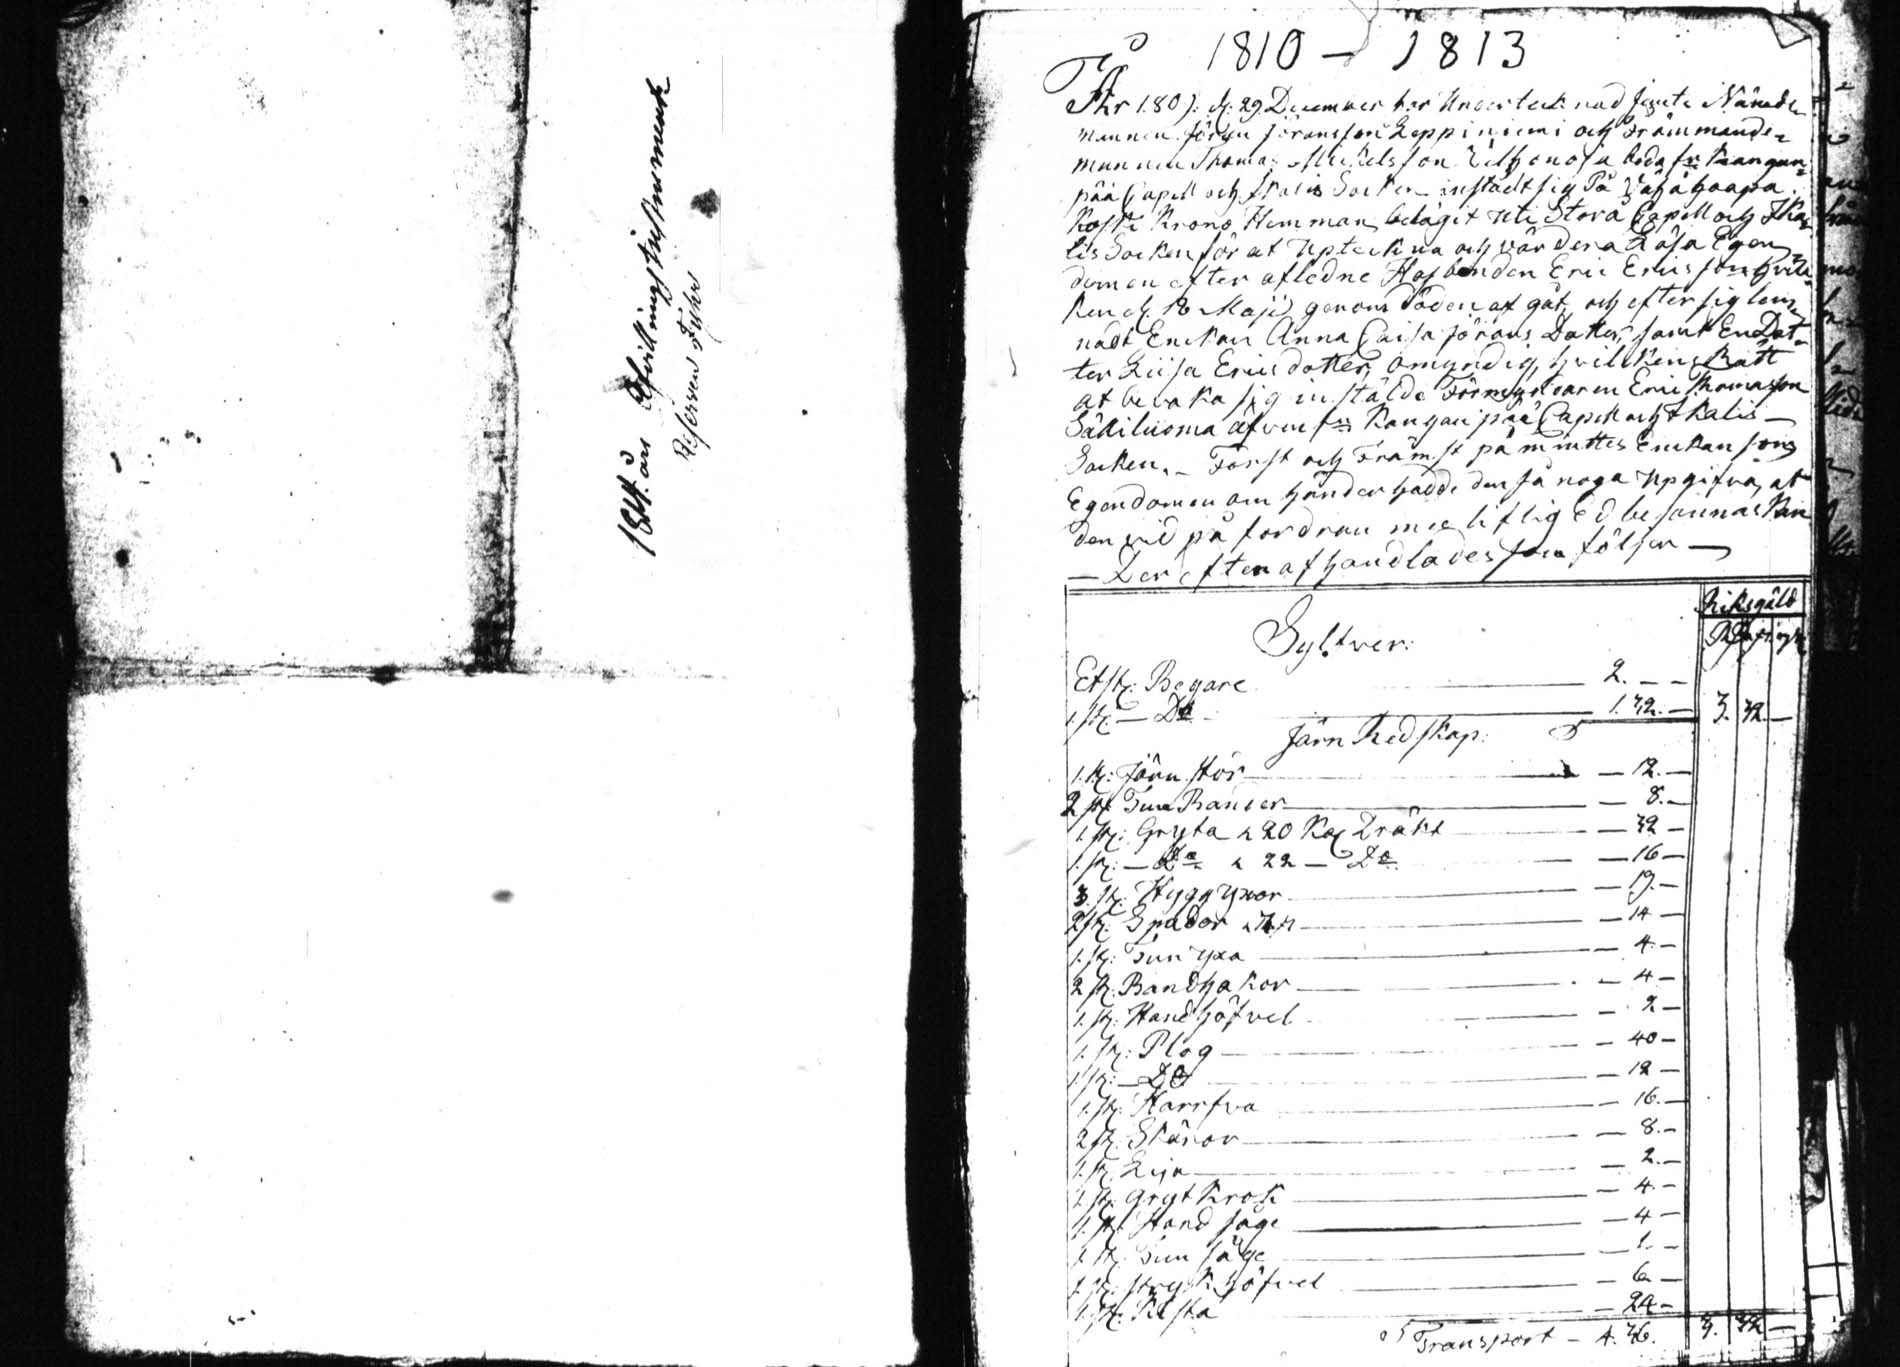 1810 – 1813
År 1809. d. 29 December har Undertecknad jemte Nämde-
mannen Jöran Jöransson Leppiniemi och Främmande-
mannen Thomas Michelsson båda fr. Kangan-
pää Capell och Ikalis Socken instädt sig På haapa
Koski Krono Hemman belägit uti Storå Capell och Ika-
lis Socken för at Upteckna och värdera Lösa Egen-
domen efter afledne Husbonden Eric Ericsson hvil-
ken d. 18 Maji genom Döden af gåt, och efter sig lem-
nadt Enkan Anna Caisa Jörans Dotter, samt En Dot-
ter Liisa Ericsdotter, omyndig, hvilkens Rätt
at bevaka sig instälde Förmyndaren Eric Thomasson
Säkiluoma äfven fr. Kanganpää Capell och Ikalis
Socken. – Först och Främst påmintes Enkan som
Egendomen om händer hade den så noga Upgifva, at
den vid på fordran med liflig Ed besannas Kan
– Der efter afhandlades som följer –
Riksgäld
Sylfver:
Et st: Begare 2. – –
1. st: – Do 1. 32. – 3. 32. –
Järn Redskap:
1. st: Järn stör – 12. –
2 st: Tun Bander – 8. –
1. st: Gryta a 20 Kar Dräkt – 32 –
1. st: – Do a 22 – Do – 16 –
3. st: Hygg yxor – 19. –
2 st: Spador – 14 –
1. st: Tun yxa – 4. –
2 st: Bandhakor – 4 –
1. st: Hand höfvel – 2 –
1. st: Plog – 40 –
1. st: – Do – 12 –
1. st: Harrfva – 16. –
2 st: Skäror – 8. –
1. st: Lija – 2. –
1. st: Grytkrok – 4. –
1. st: Hand såge – 4 –
1. st: Tun såge – 1. –
1. st: stryk höfvel – 6 –
1. st: Kista – 24 –
Transport – 4. 36. 3. 32 –
1811 års Afvittningsinstrumenter